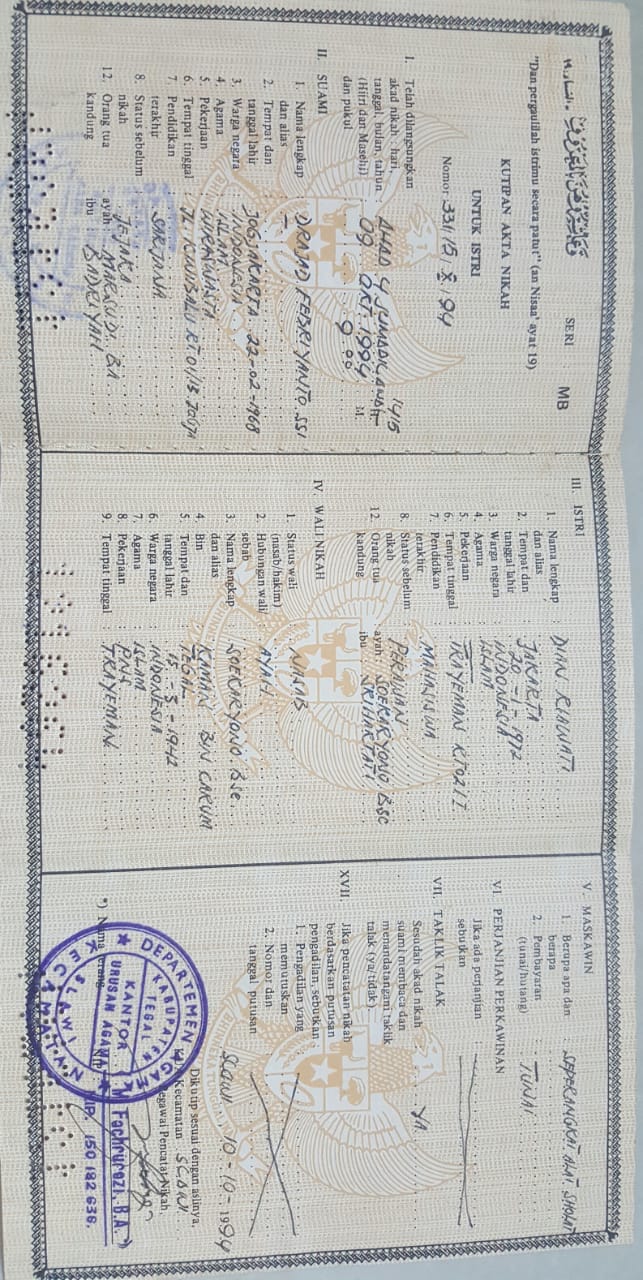 "Dan pergaulilah istrimu secara patut" (an Nissa' ayat 19)
SERI MB
KUTIPAN AKTA NIKAH
UNTUK ISTRI
Nomor 331/15/X/94
I. Telah dilangsungkan
akad nikah : hari,
tanggal, bulan, tahun : AHAD 4 JUMADIL AWAL 1415
(Hijri dan Masehi) 09 OKT. 1994 M.
dan pukul 9.00
II. SUAMI
1. Nama lengkap : DRAJAD FEBRYANTO. SSI
dan alias
2. Tempat dan
tanggal lahir : JOGJAKARTA 22-02-1968
3. Warga negara : INDONESIA
4. Agama : ISLAM
5. Pekerjaan : WIRASWASTA
6. Tempat tinggal : JL. KINIBALU RT 01/13 Jogja
7. Pendidikan
terakhir : SARJANA
8. Status sebelum
nikah : JEJAKA
12. Orang tua ayah : MARSUDI. BA
kandung ibu : BADRIYAH
III. ISTRI
1. Nama lengkap : DIAN RIAWATI
dan alias
2. Tempat dan : JAKARTA
tanggal lahir 20-1-1972
3. Warga negara : INDONESIA
4. Agama : ISLAM
5. Pekerjaan : —
6. Tempat tinggal : TRAYEMAN RT02/I
7. Pendidikan
terakhir : MAHASISWA
8. Status sebelum
nikah : PERAWAN
12. Orang tua ayah : SOEKARYONO. BSC
kandung ibu : SRI HARTATI
IV. WALI NIKAH
1. Status wali : NASAB
(nasab/hakim)
2. Hubungan wali : AYAH
sebab
3. Nama lengkap : SOEKARYONO. BSc
dan alias
4. Bin : KIMAN BIN CARUM
5. Tempat dan : TEGAL
tanggal lahir 15-5-1942
6. Warga negara : INDONESIA
7. Agama : ISLAM
8. Pekerjaan : PNS
9. Tempat tinggal : TRAYEMAN
V. MASKAWIN
1. Berupa apa dan : SEPERANGKAT ALAT SHOLAT
berapa
2. Pembayaran : TUNAI
(tunai/hutang)
VI. PERJANJIAN PERKAWINAN
Jika ada perjanjian :
sebutkan
VII. TAKLIK TALAK
Sesudah akad nikah
suami membaca dan
menandatangani taklik
talak (ya/tidak) : YA
XVII. Jika pencatatan nikah
berdasarkan putusan
pengadilan, sebutkan :
1. Pengadilan yang
memutuskan
2. Nomor dan
tanggal putusan
Slawi 10-10-1994
Dikutip sesuai dengan aslinya,
Kecamatan SLAWI
Pegawai Pencatat Nikah,
M. Fachrurozi, B.A.
NIP. 150 182 636.
*) Nama terang
DEPARTEMEN AGAMA
KABUPATEN TEGAL
KANTOR
URUSAN AGAMA
KECAMATAN SLAWI